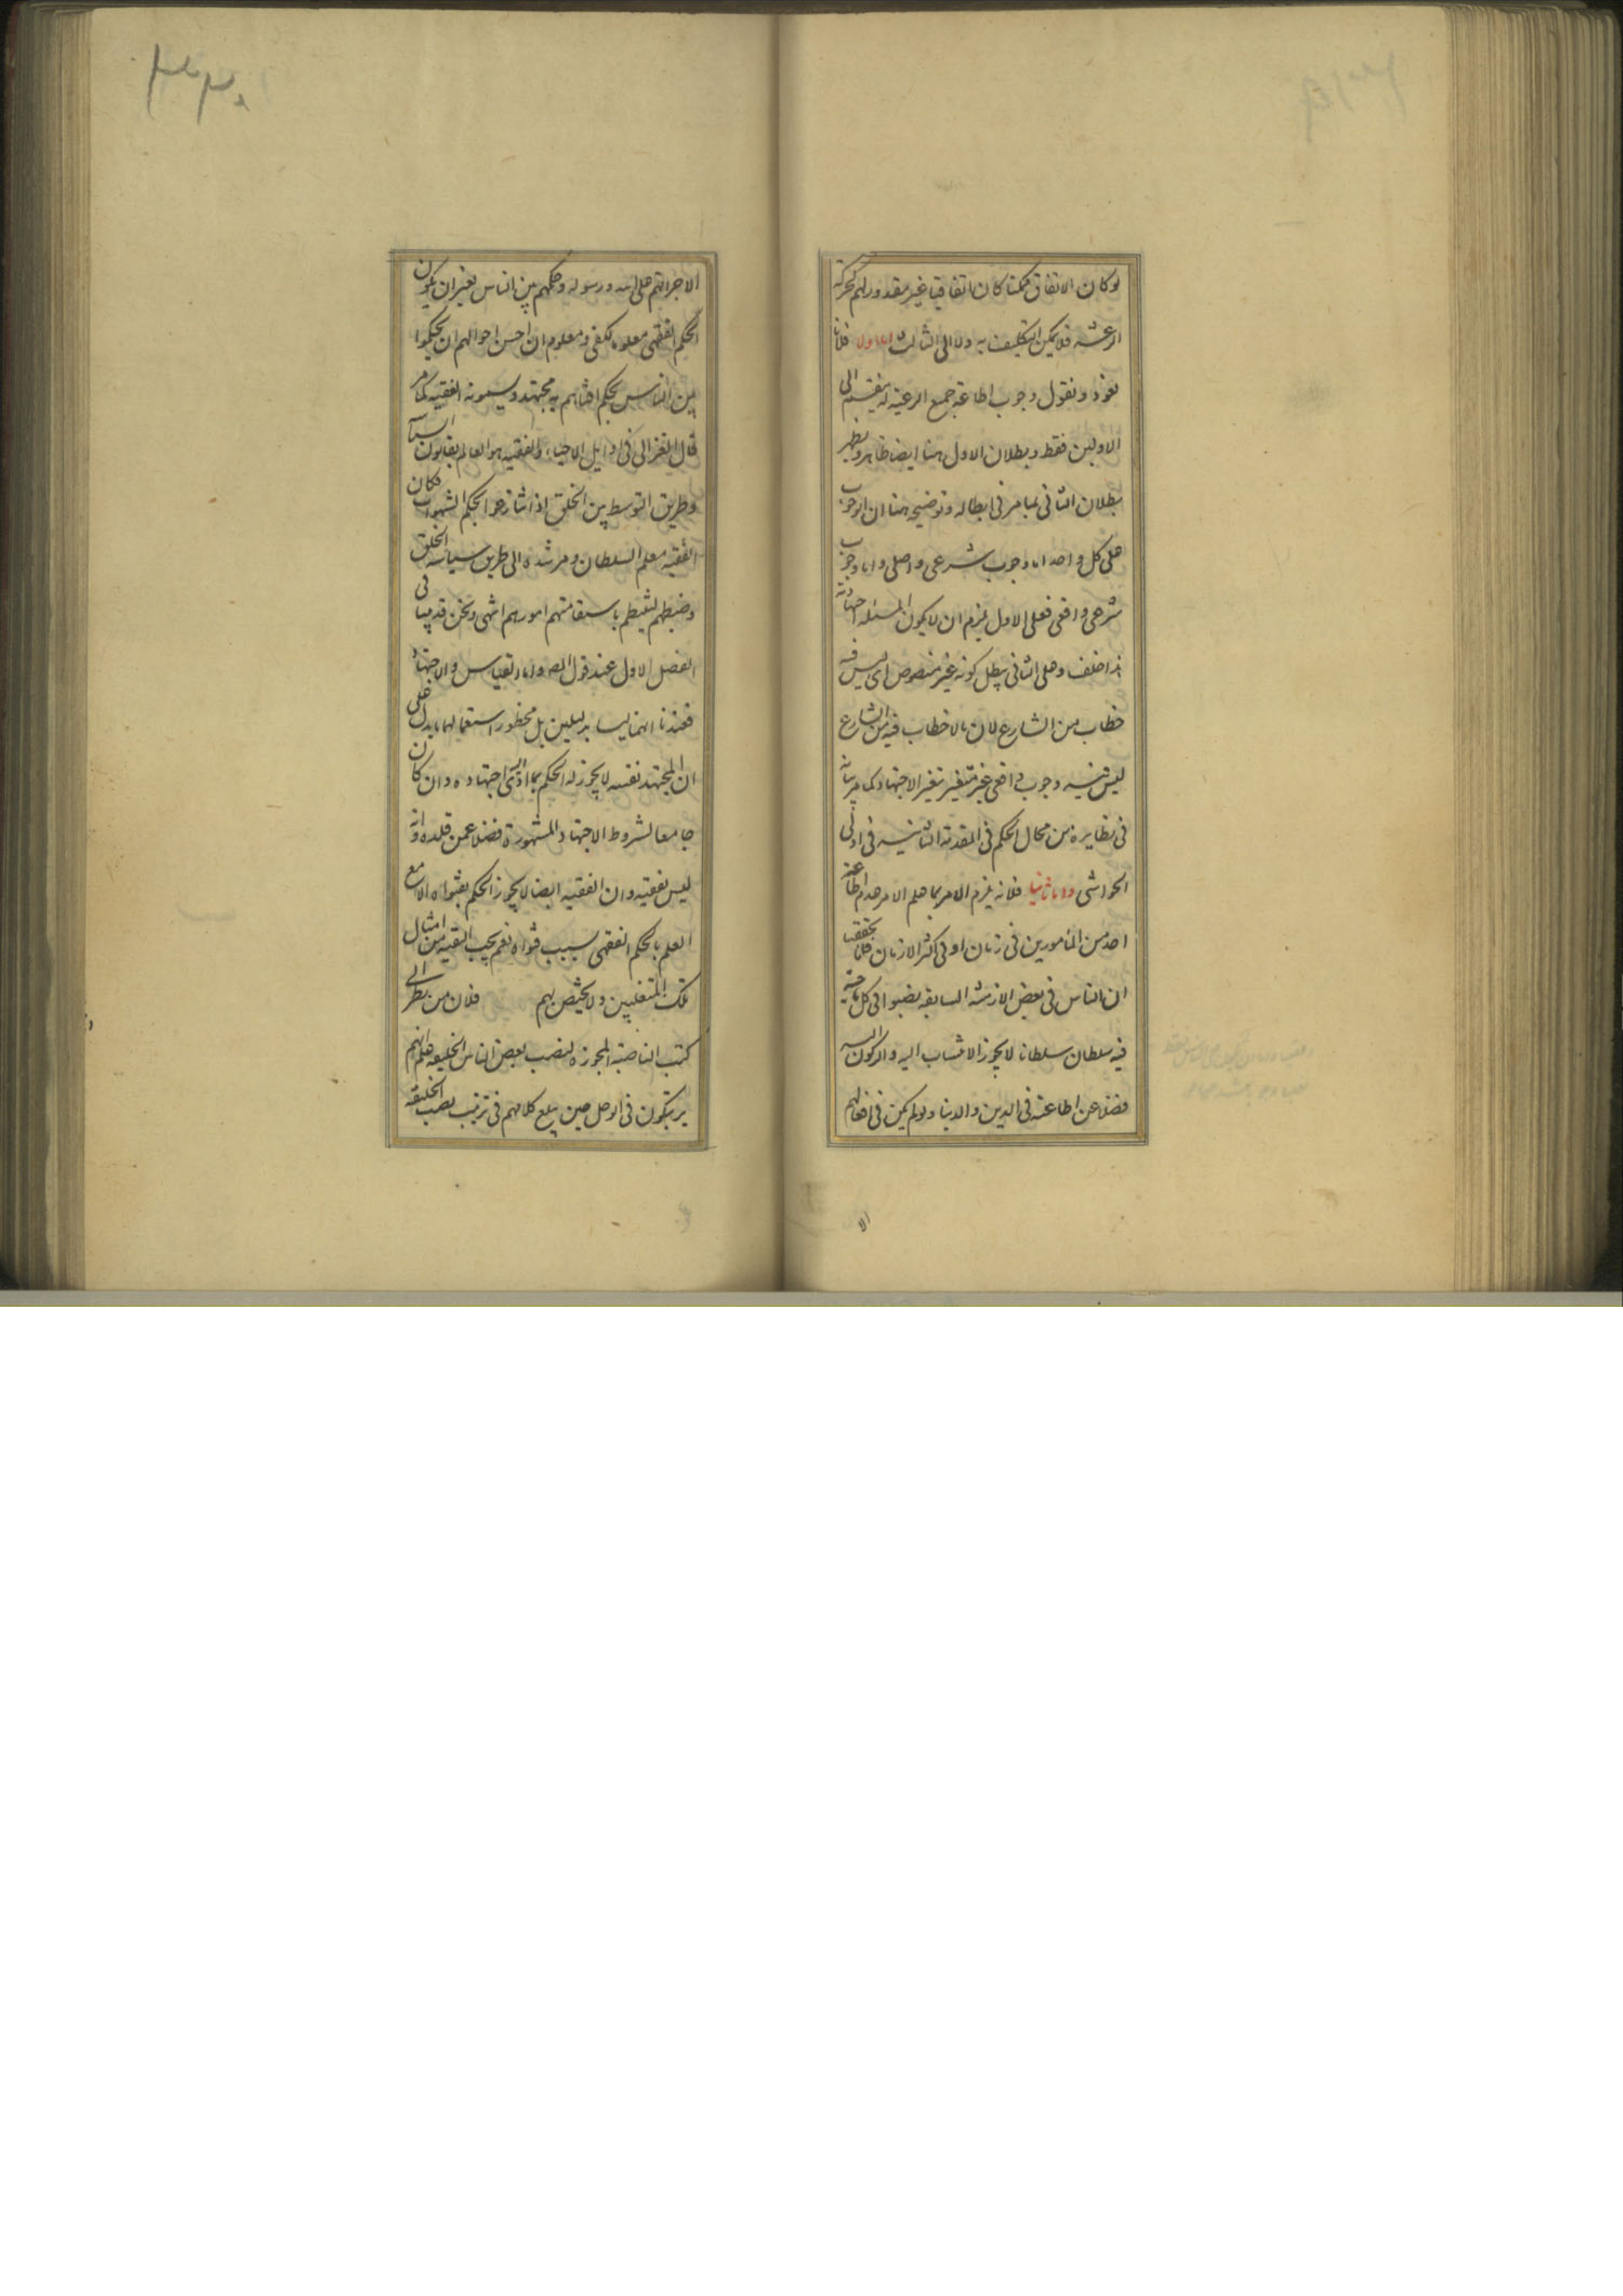 لو كان الاتفاق ممكنا كان اتفاقيا غير مقدور لهم كحركة
الرعشة فلا يمكن التكليف به ولا الى الثالث اما اولا فلانا
نعود ونقول وجوب اطاعة جميع الرعية له ينقسم الى
الاولين فقط وبطلان الاول هنا ايضا ظاهر ويظهر
بطلان الثانى بما مر فى ابطاله وتوضيحه هنا ان الوجوب
على كل واحد اما وجوب شرعى واصلى واما وجوب
شرعى واقعى فعلى الاول يلزم ان لا يكون المسئلة اجتهادية
هذا خلف وعلى الثانى يبطل كونه غير منصوص اى ليس فيه
خطاب من الشارع لان ما لا خطاب فيه من الشارع
ليس فيه وجوب واقعى غير متغير بتغير الاجتهاد كما مر بيانه
فى نظايره من محال الحكم فى المقدمة الثانية فى اولى
الحواشى واما ثانيا فلانه يلزم الامر بما علم الامر عدم اطاعة
احد من المأمورين فى زمان او فى اكثر الازمان فانا تحققنا
ان الناس فى بعض الازمنة السابقة نصبوا فى كل ناحية
فيه سلطان سلطانا لا يجوز الانتساب اليه والركون اليه
فضلا عن اطاعته فى الدين والدنيا ولو لم يكن فى افعالهم
الا
الا جرأتهم على الله ورسوله وحكمهم بين الناس بغير ان يكون
الحكم الفقهى معلوما لكفى ومعلوم ان احسن احوالهم ان يحكموا
بين الناس بحكم افتاهم به مجتهد ويسمونه الفقيه كما مر
قال الغزالى فى اوايل الاحياء والفقيه هو العالم بقانون السياسة
وطريق التوسط بين الخلق اذا تنازعوا بحكم الشهوات فكان
الفقيه معلم السلطان ومرشده الى طريق سياسة الخلق
وضبطهم لينتظم باستقامتهم امورهم انتهى ونحن قد بينا فى
الفصل الاول عند قول المص واما القياس والاجتهاد
فعندنا انهما ليسا بدليلين بل محظور استعمالهما ما يدل على
ان المجتهد نفسه لا يجوز له الحكم بما ادى اليه اجتهاده وان كان
جامعا لشروط الاجتهاد المشهورة فضلا عمن قلده وانه
ليس بفقيه وان الفقيه ايضا لا يجوز الحكم بفتواه الا مع
العلم بالحكم الفقهى بسبب فتواه نعم يجب التقية من امثال
تلك المتغلبين ولا يختص بهم فلان من نظر الى
كتب الناصبة المجوزة لنصب بعض الناس الخليفة علم انهم
يرتبكون فى الوحل حين يبلغ كلامهم فى ترتيب نصب الخليفة